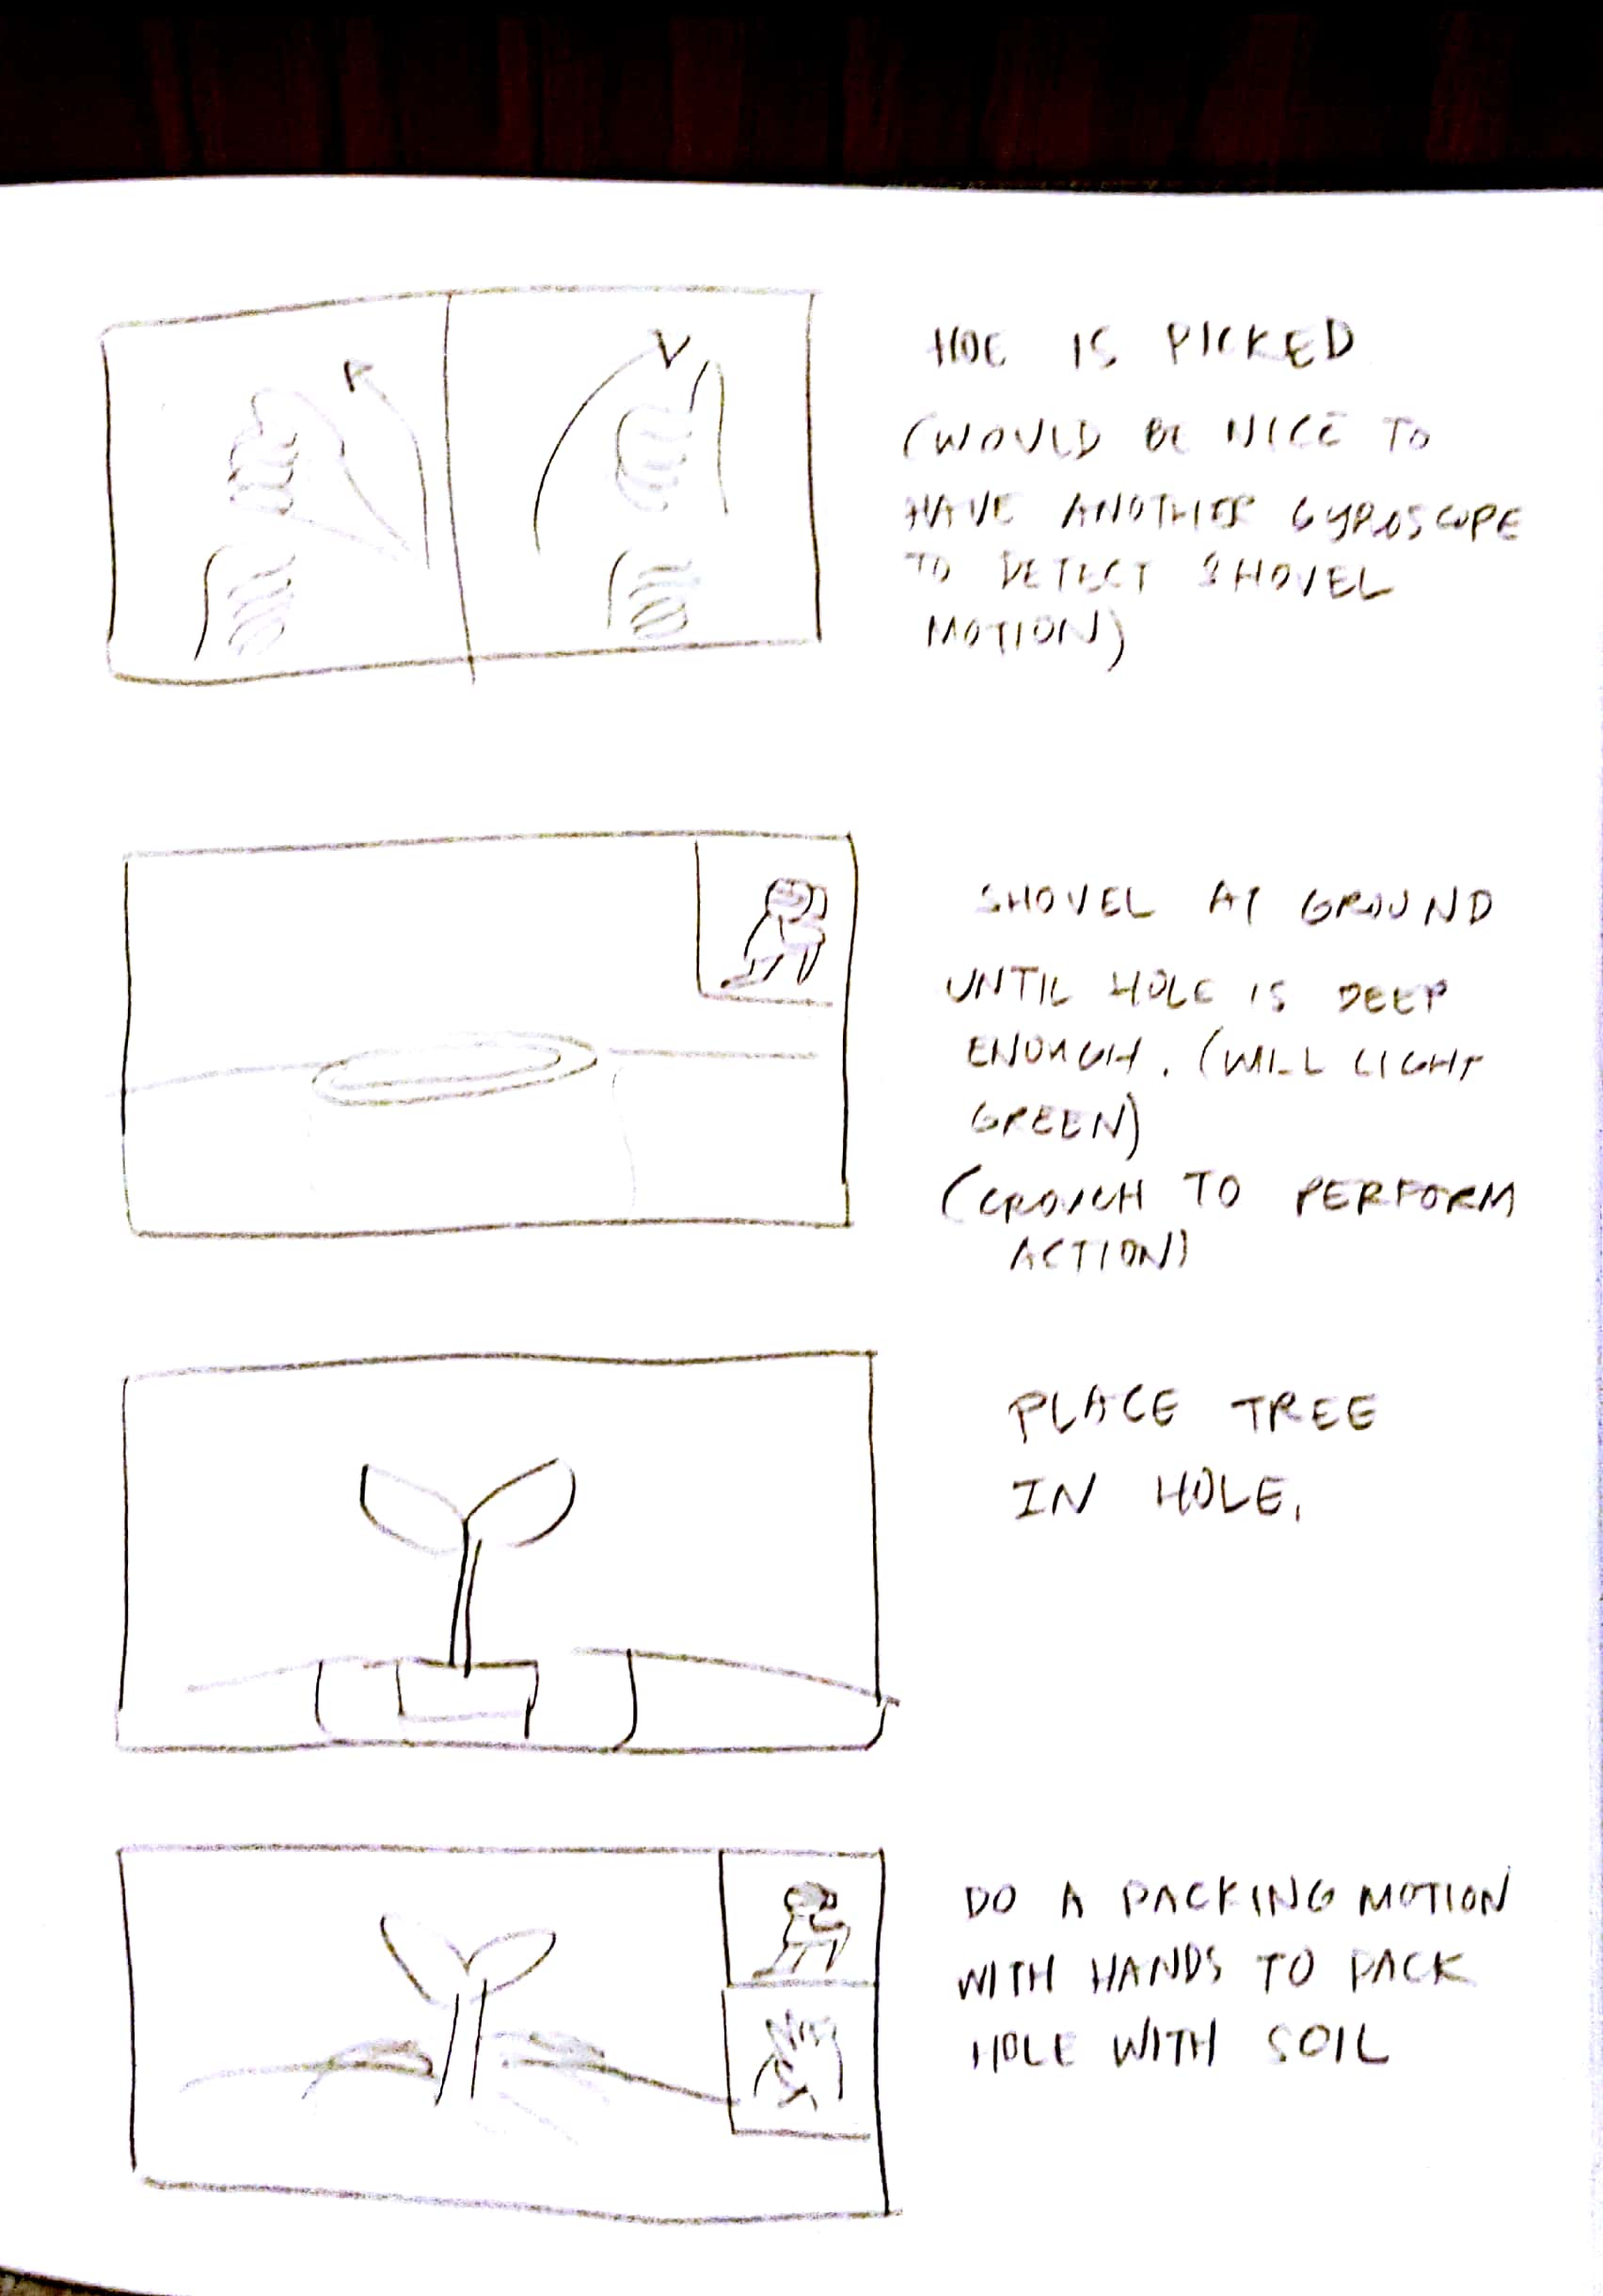 HOE IS PICKED
(WOULD BE NICE TO
HAVE ANOTHER GYROSCOPE
TO DETECT SHOVEL
MOTION)
SHOVEL AT GROUND
UNTIL HOLE IS DEEP
ENOUGH. (WILL LIGHT
GREEN)
(CROUCH TO PERFORM
ACTION)
PLACE TREE
IN HOLE.
DO A PACKING MOTION
WITH HANDS TO PACK
HOLE WITH SOIL